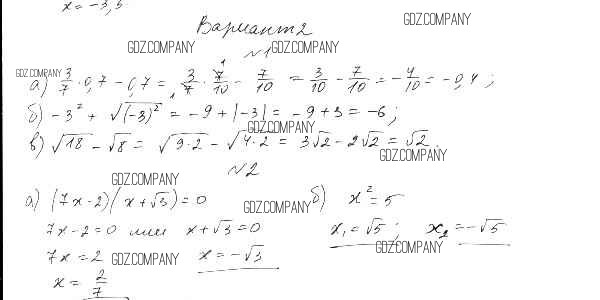 x = -3,5
GDZ.COMPANY
Вариант 2
GDZ.COMPANY GDZ.COMPANY
№1
GDZ.COMPANY
а) 3/7 · 0,7 - 0,7 = 3/7 · 7/10 - 7/10 = 3/10 - 7/10 = -4/10 = -0,4;
б) -3² + √(-3)² = -9 + |-3| = -9 + 3 = -6;
GDZ.COMPANY
в) √18 - √8 = √9·2 - √4·2 = 3√2 - 2√2 = √2.
GDZ.COMPANY
№2
GDZ.COMPANY
а) (7x-2)(x+√3) = 0 б) x² = 5
GDZ.COMPANY
7x-2 = 0 или x+√3 = 0 x₁ = √5; x₂ = -√5
GDZ.COMPANY
7x = 2 x = -√3
GDZ.COMPANY
x = 2/7